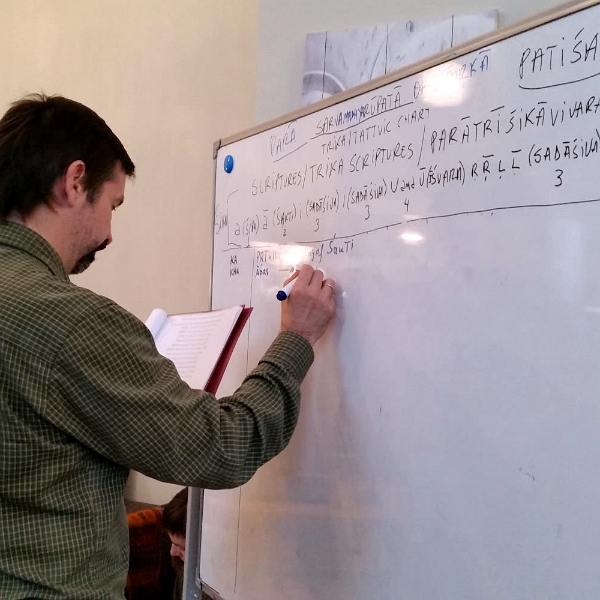 PARĀ SARVAMAYARŪPATĀ PATIŚA
TRIKA TATTVIC CHART
SCRIPTURES/TRIKA SCRIPTURES/PARĀTRĪŚIKĀVIVAR
a (ŚIVA) ā (ŚAKTI) i (SADĀŚIVA) ī (SADĀŚIVA) U and Ū (ĪŚVARA) Ṛ Ṝ Ḷ Ḹ (SADĀŚIVA)
2 3 3 4 3
KA
KHA
of Śakti